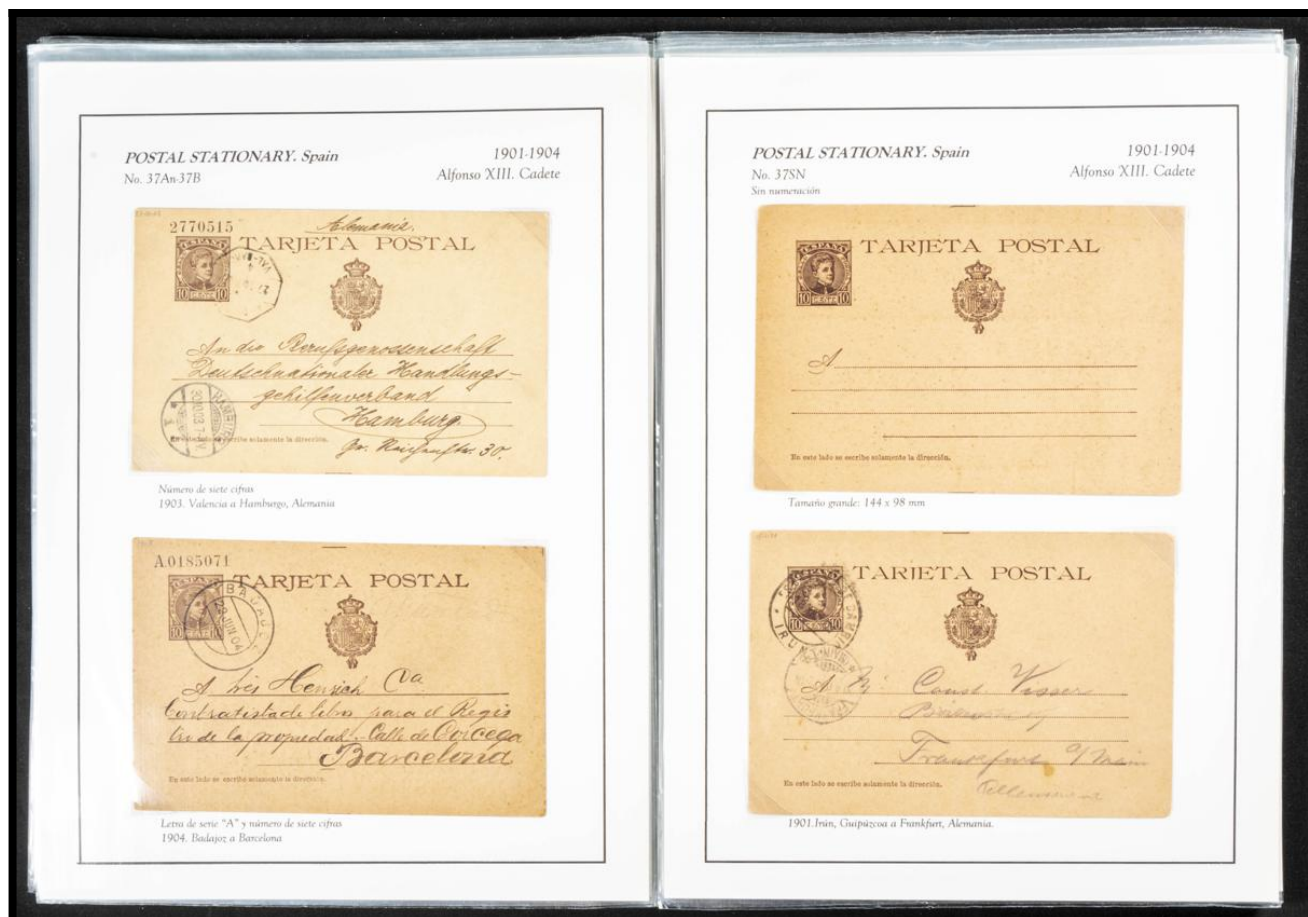 POSTAL STATIONARY. Spain
No. 37An-37B
1901-1904
Alfonso XIII. Cadete
2770515
Alemania.
TARJETA POSTAL
ESPAÑA
10 CENTS 10
An die Berufsgenossenschaft
Deutschnationaler Handlungs-
gehilfenverband
Hamburg
Gr. 30.
HAMBURG
1
En este lado se escribe solamente la dirección.
Número de siete cifras
1903. Valencia a Hamburgo, Alemania
A.0185071
TARJETA POSTAL
ESPAÑA
10 10
BADAJOZ
28 JUN 04
A Henrich Cia
Contratista de libros para el Regis
tro de la propiedad - Calle de Córcega
Barcelona
En este lado se escribe solamente la dirección.
Letra de serie "A" y número de siete cifras
1904. Badajoz a Barcelona
POSTAL STATIONARY. Spain
No. 37SN
Sin numeración
1901-1904
Alfonso XIII. Cadete
TARJETA POSTAL
ESPAÑA
10 CENTS 10
A
En este lado se escribe solamente la dirección.
Tamaño grande: 144 x 98 mm
TARJETA POSTAL
10 10
CAMBIO
IRUN
A Const. Visser
Frankfurt a/ Main
En este lado se escribe solamente la dirección.
1901.Irún, Guipúzcoa a Frankfurt, Alemania.